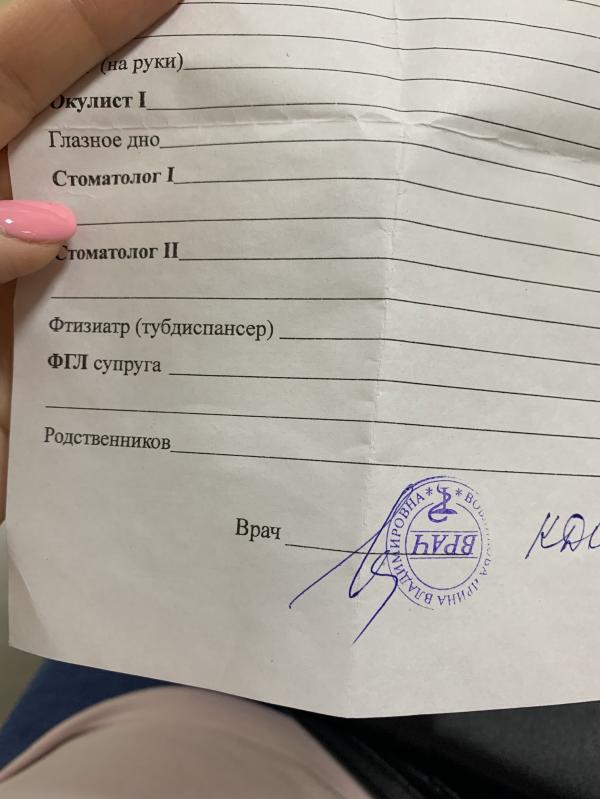 (на руки)
Окулист I
Глазное дно
Стоматолог I
Стоматолог II
Фтизиатр (тубдиспансер)
ФГЛ супруга
Родственников
Врач
ВРАЧ
ИРИНА ВЛАДИМИРОВНА